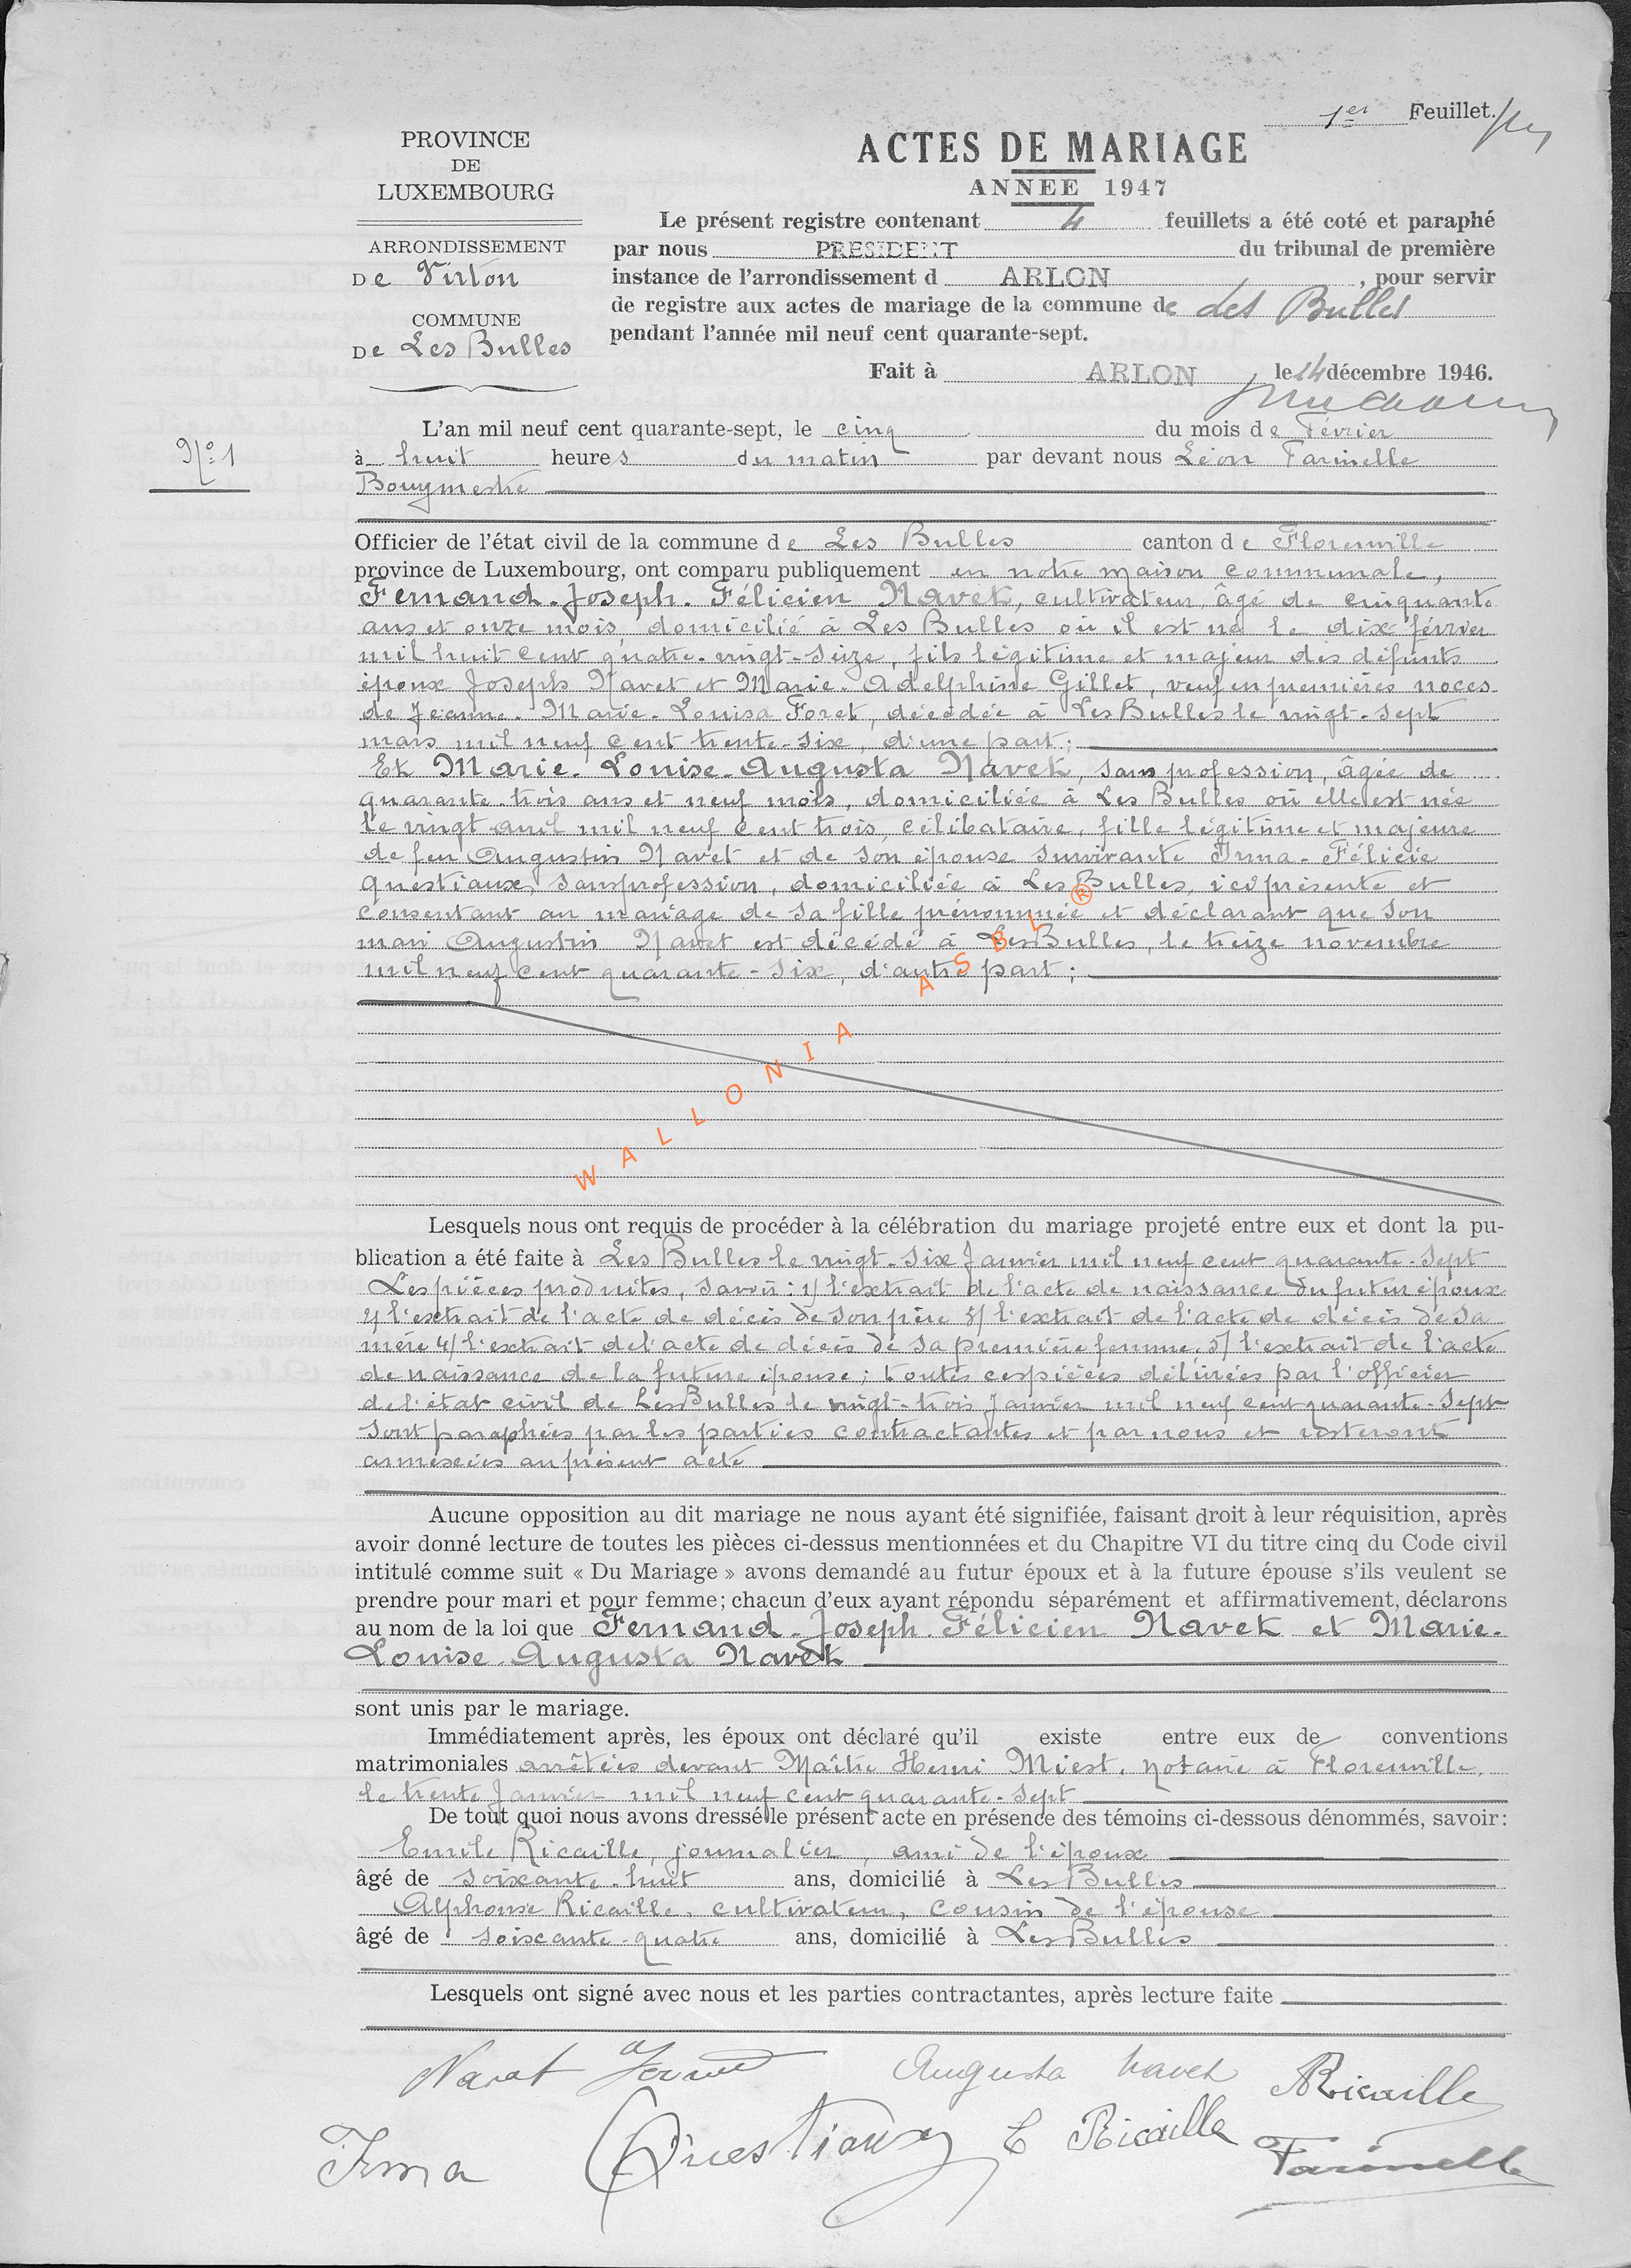 1er Feuillet.
PROVINCE
DE
LUXEMBOURG
ARRONDISSEMENT
De Virton
COMMUNE
De Les Bulles
ACTES DE MARIAGE
ANNEE 1947
Le présent registre contenant 4 feuillets a été coté et paraphé
par nous PRESIDENT du tribunal de première
instance de l'arrondissement d ARLON, pour servir
de registre aux actes de mariage de la commune de des Bulles
pendant l'année mil neuf cent quarante-sept.
Fait à ARLON, le 14 décembre 1946.
No 1
L'an mil neuf cent quarante-sept, le cinq du mois de Février
à huit heures du matin par devant nous Léon Farinelle
Bourgmestre
Officier de l'état civil de la commune de Les Bulles canton de Florenville
province de Luxembourg, ont comparu publiquement en notre maison communale,
Fernand-Joseph-Félicien Navet, cultivateur, âgé de cinquante
ans et onze mois, domicilié à Les Bulles où il est né le dix février
mil huit cent quatre-vingt-seize, fils légitime et majeur des défunts
époux Joseph Navet et Marie-Adelphine Gillet, veuf en premières noces
de Jeanne-Marie-Louisa Foret, décédée à Les Bulles le vingt-sept
mars mil neuf cent trente-six, d'une part;
Et Marie-Louise-Augusta Navet, sans profession, âgée de
quarante-trois ans et neuf mois, domiciliée à Les Bulles où elle est née
le vingt avril mil neuf cent trois, célibataire, fille légitime et majeure
de feu Augustin Navet et de son épouse survivante Irma-Félicie
Questiaux, sans profession, domiciliée à Les Bulles, ici présente et
consentant au mariage de sa fille prénommée et déclarant que son
mari Augustin Navet est décédé à Les Bulles, le treize novembre
mil neuf cent quarante-six, d'autre part;
WALLONIA ASBL ®
Lesquels nous ont requis de procéder à la célébration du mariage projeté entre eux et dont la pu-
blication a été faite à Les Bulles le vingt-six Janvier mil neuf cent quarante-sept
Les pièces produites, savoir: 1/ l'extrait de l'acte de naissance du futur époux
2/ l'extrait de l'acte de décès de son père 3/ l'extrait de l'acte de décès de sa
mère 4/ l'extrait de l'acte de décès de sa première femme, 5/ l'extrait de l'acte
de naissance de la future épouse; toutes ces pièces délivrées par l'officier
de l'état civil de Les Bulles le vingt-trois Janvier mil neuf cent quarante-sept
sont paraphées par les parties contractantes et par nous et resteront
annexées au présent acte
Aucune opposition au dit mariage ne nous ayant été signifiée, faisant droit à leur réquisition, après
avoir donné lecture de toutes les pièces ci-dessus mentionnées et du Chapitre VI du titre cinq du Code civil
intitulé comme suit « Du Mariage » avons demandé au futur époux et à la future épouse s'ils veulent se
prendre pour mari et pour femme; chacun d'eux ayant répondu séparément et affirmativement, déclarons
au nom de la loi que Fernand-Joseph-Félicien Navet et Marie-
Louise-Augusta Navet
sont unis par le mariage.
Immédiatement après, les époux ont déclaré qu'il existe entre eux de conventions
matrimoniales arrêtées devant Maître Henri Miest, notaire à Florenville,
le trente Janvier mil neuf cent quarante-sept
De tout quoi nous avons dressé le présent acte en présence des témoins ci-dessous dénommés, savoir:
Emile Ricaille, journalier, ami de l'époux
âgé de soixante-huit ans, domicilié à Les Bulles
Alphonse Ricaille, cultivateur, cousin de l'épouse
âgé de soixante-quatre ans, domicilié à Les Bulles
Lesquels ont signé avec nous et les parties contractantes, après lecture faite
Navet Augusta Navet A Ricaille
Irma Questiaux E Ricaille Farinelle